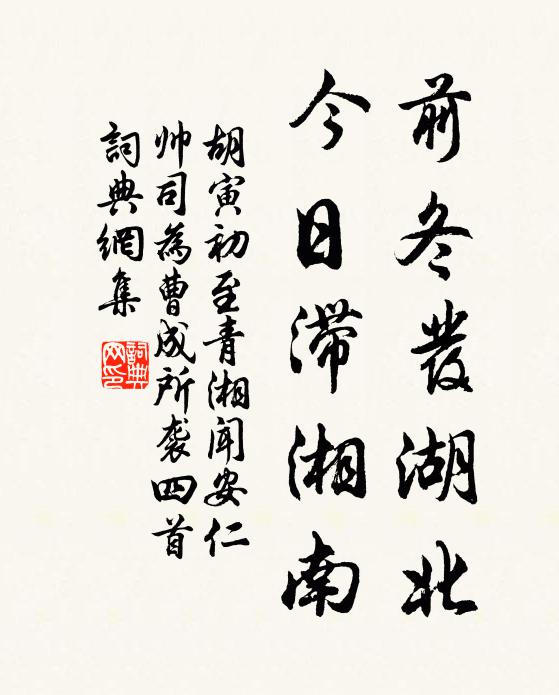 前冬發湖北
今日滯湘南
胡寅初至青湘聞安仁
帅司為曹成所袭四首
詞典網集
詞典网印